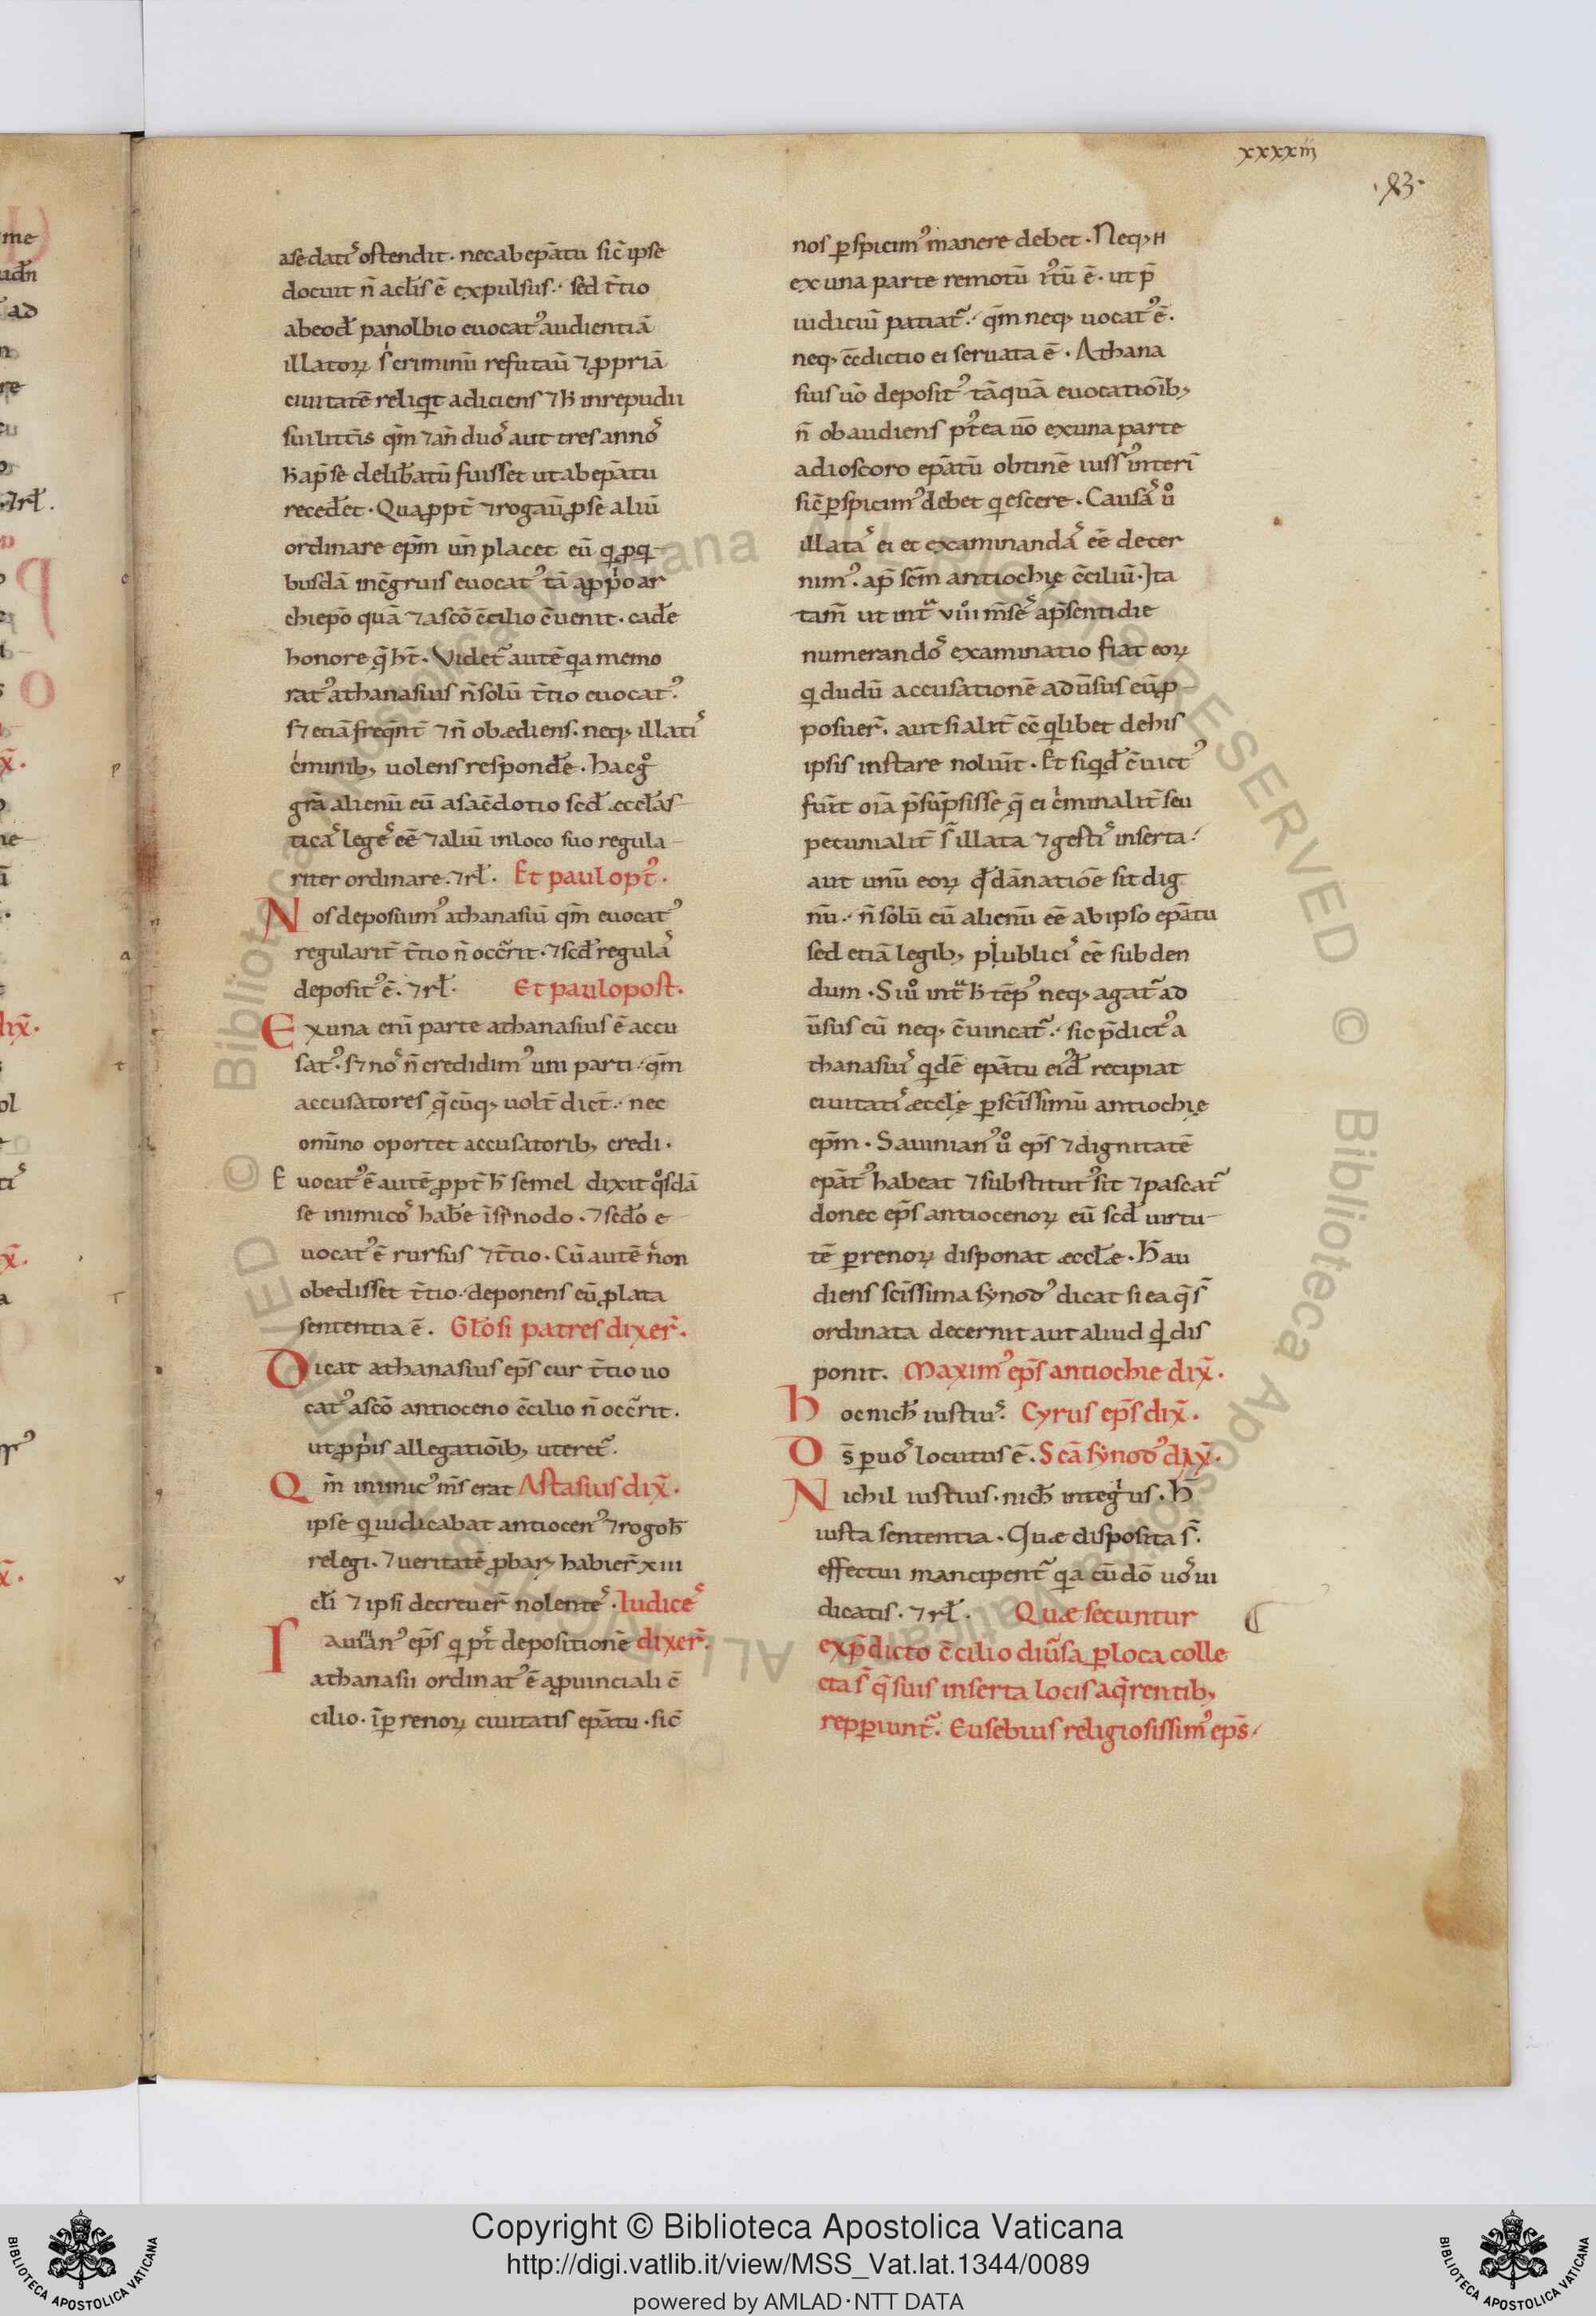 xxxxiii
·83·
ase dati᷒ ostendit. nec ab ep̄atu sic̄ ipse
docuit n̄ a cl̄is ē expulsus. sed t̄tio
ab eod̄ panolbio euocatꝰ audientiā
illatoꝝ s̄ criminū refutaū ⁊ ꝓpriā
ciuitatē reliqit adiciens ⁊ ħ in repudii
sui litt̄is qm̄ ⁊ an̄ duo᷒ aut tres anno᷒
ħ ap̄ se delib̄atū fuisset ut ab ep̄atu
reced̄et. Quaꝓpt̄ ⁊ rogaū ꝓ se aliū
ordinare ep̄m un̄ placet eū q ꝓ q
busdā inc̄gruis euocatꝰ tā a ꝓpo ar
chiep̄o quā ⁊ a sc̄o c̄cilio c̄uenit. cad̄e
honore q̄ ht̄. Videt᷒ autē qa memo
ratꝰ athanasius n̄ solū t̄tio euocatꝰ
s⁊ etiā freqn̄t̄ ⁊ n̄ obædiens. neqꝫ illati᷒
c̄minibꝫ uolens respond̄e. hac g̊
gr̄a alienū eū a sac̄dotio scd̄ æccl̄as
tica᷒ lege᷒ ēē ⁊ aliū in loco suo regula
riter ordinare. ⁊ rl̄. Et paulo ptꝰ.
Nos deposuimꝰ athanasiū qm̄ euocatꝰ
regularit̄ t̄tio n̄ occ̄rit. ⁊ scd̄ regula᷒
depositꝰ ē. ⁊ rl̄. Et paulo post.
Ex una eni᷒ parte athanasius ē accu
satꝰ. s⁊ no᷒ n̄ credidimꝰ uni parti. qm̄
accusatores q̄cūqꝫ uolt̄ dic̄t. nec
omīno oportet accusatoribꝫ credi.
Euocatꝰ ē autē ꝓpt̄ ħ semel dixit q̊sdā
se inimico᷒ hab̄e ī synodo. ⁊ scd̄o e
uocatꝰ ē rursus ⁊ t̄tio. Cū autē n̄ non
obedisset t̄tio. deponens eū ꝓlata
sententia ē. Gl̄osi patres dixer̄.
Dicat athanasius ep̄s cur t̄tio uo
catꝰ a sc̄o antioceno c̄cilio n̄ occ̄rit.
ut ꝓpis allegatiōibꝫ uteret᷒.
Qm̄ inimicꝰ m̄s erat Astasius dix̄.
ipse q iudicabat antiocenꝰ ⁊ rogo ħ
relegi. ⁊ ueritatē ꝓbarꝫ habier̄ xiii
cl̄i ⁊ ipsi decreuer̄ nolente᷒. Iudice᷒
Sauinianꝰ ep̄s q pt̄ depositionē dixer̄.
athanasii ordinatꝰ ē a ꝓuinciali c̄
cilio. ī ꝑrenoꝝ ciuitatis ep̄atu. sic̄
nos ꝑspicimꝰ manere debet. Neqꝫ n
ex una parte remotū ītū ē. ut p̄
iudiciū patiat᷒. qm̄ neqꝫ uocatꝰ ē.
neqꝫ c̄dictio ei seruata ē. Athana
sius uō depositꝰ tāquā euocatiōibꝫ
n̄ obaudiens ptꝰea uō ex una parte
a dioscoro ep̄atū obtinē iussꝰ interi᷒
sic̄ ꝑspicimꝰ debet qescere. Causa᷒ ů
illata᷒ ei et examinanda᷒ ēē deter
nimꝰ. ap̄ sc̄m antiochię c̄ciliū. Ita
tam̄ ut int̄ viii m̄se᷒ ap̄senti die
numerando᷒ examinatio fiat eoꝝ
q dudū accusationē aduu᷒sus eū ꝓ
posuer̄. aut si alit̄ ēc qlibet de his
ipsis instare noluīt. Et si qd̄ c̄uictꝰ
fuīt oīa p̄sūpsisse q̄ ei c̄minalit̄ seu
pecunialit̄ s̄ illata ⁊ gesti᷒ inserta.
aut unū eoꝝ qd̄ dānatiōe sit dig
nū. n̄ solū eū alienū ēē ab ipso ep̄atu
sed etiā legibꝫ publici᷒ ēē subden
dum. Si ů int̄ ħ tēpꝰ neqꝫ agat᷒ ad
ūsus eū neqꝫ c̄uincat᷒. sic p̄dictꝰ a
thanasiu᷒ qdē ep̄atu eid̄ recipiat
ciuitati᷒ æccl̄ę ꝑ sc̄issimū antiochię
ep̄m. Sauinianꝰ ů ep̄s ⁊ dignitatē
ep̄atꝰ habeat ⁊ substitutꝰ sit ⁊ pascat᷒
donec ep̄s antiocenoꝝ eū scd̄ uirtu
tē ꝑrenoꝝ disponat æccl̄æ. H̄ au
diens sc̄issima synodꝰ dicat si ea q̄ s̄
ordinata decernit aut aliud qd̄ dis
ponit. Maximꝰ ep̄s antiochie dix̄.
hoc nich̄ iustiu᷒. Cyrus ep̄s dix̄.
Ds̄ ꝑ uo᷒ locutus ē. Scā synodꝰ dix̄.
Nichil iustius. nich̄ integ̍us. H̄
iusta sententia. Quæ disposita s̄.
effectui mancipent᷒ qa cū dō uo᷒ iu
dicatis. ⁊ rl̄. Quæ secuntur
ex p̄dicto c̄cilio diūsa ꝑ loca colle
cta s̄ q̄ suis inserta locis a q̄rentibꝫ
reppiunt᷒. Eusebius religiosissimꝰ ep̄s
Copyright © Biblioteca Apostolica Vaticana
http://digi.vatlib.it/view/MSS_Vat.lat.1344/0089
powered by AMLAD·NTT DATA